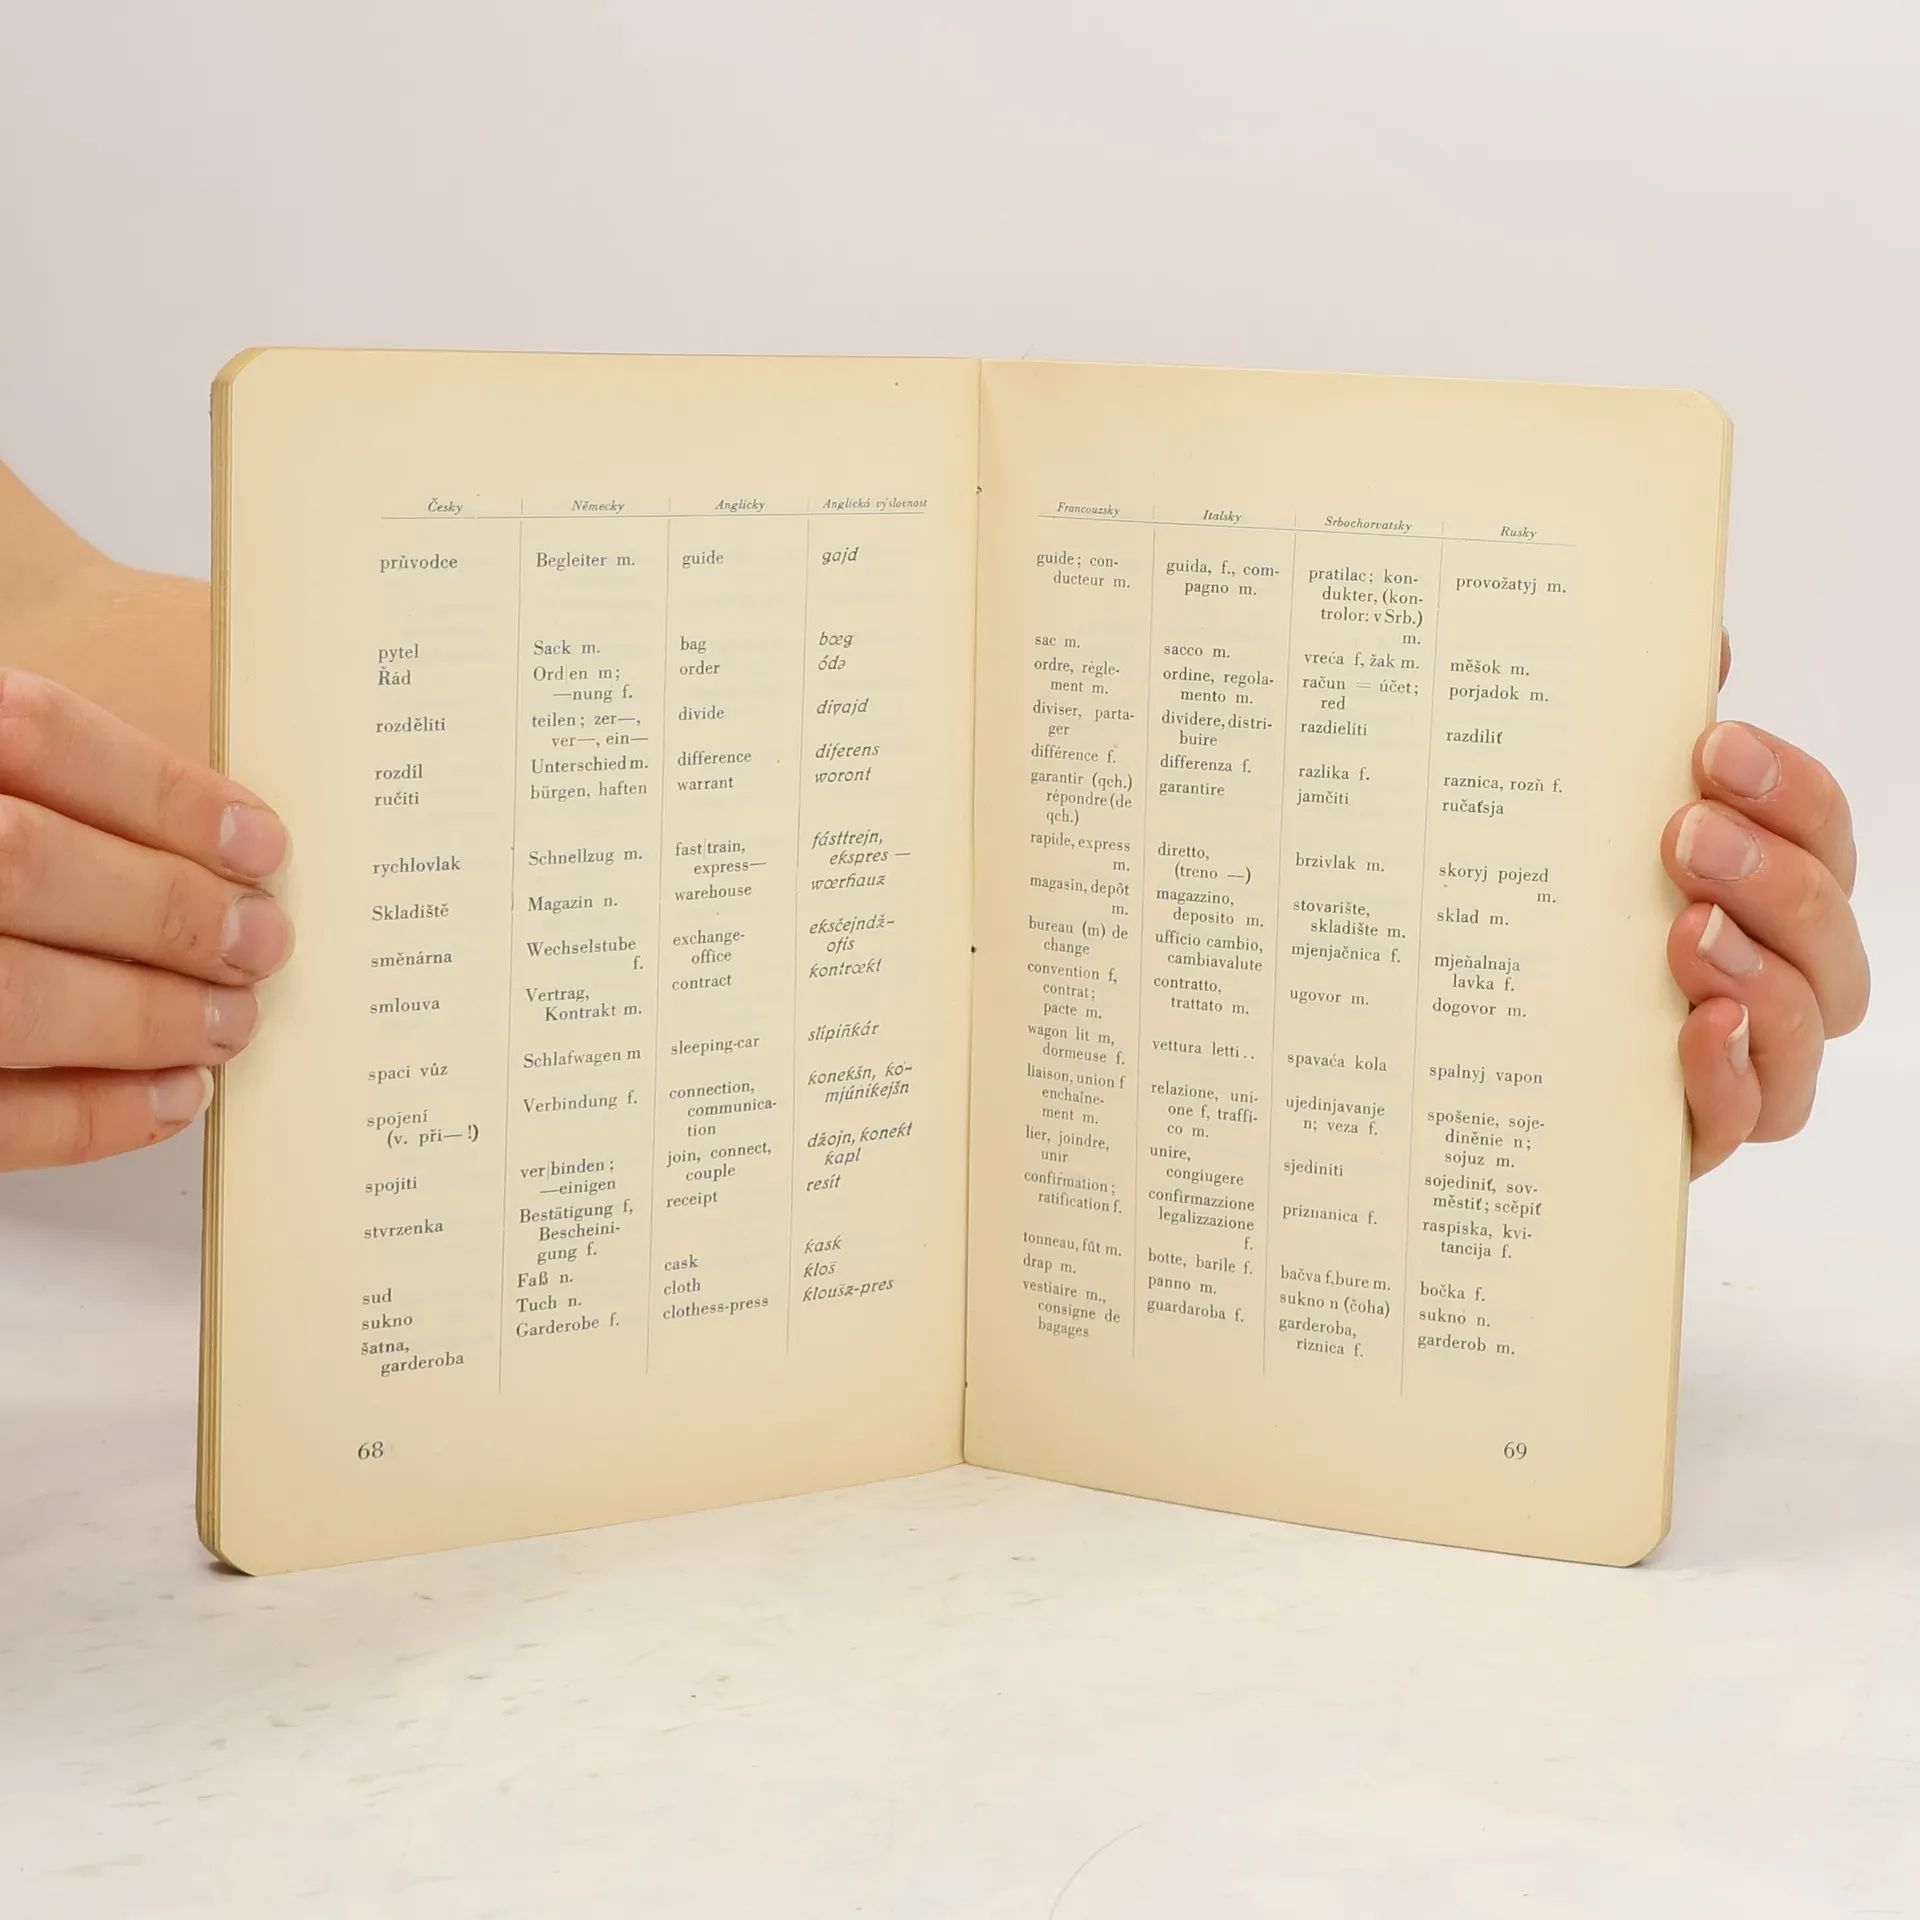 Česky Německy Anglicky Anglická výslovnost
průvodce Begleiter m. guide gajd
pytel Sack m. bag bœg
Řád Ord|en m; order ódə
—nung f.
rozděliti teilen; zer—, divide divajd
ver—, ein—
rozdíl Unterschied m. difference diferens
ručiti bürgen, haften warrant woront
rychlovlak Schnellzug m. fast|train, fásttrejn,
express— ekspres —
Skladiště Magazin n. warehouse wœrhauz
směnárna Wechselstube exchange- eksčejndž-
f. office ofis
smlouva Vertrag, contract kontrœkt
Kontrakt m.
spaci vůz Schlafwagen m sleeping-car slípiňkár
spojení Verbindung f. connection, konekšn, ko-
(v. při— !) communica- mjúnikejšn
tion
spojiti ver|binden; join, connect, džojn, konekt
—einigen couple kapl
stvrzenka Bestätigung f, receipt resít
Bescheini-
gung f.
sud Faß n. cask kask
sukno Tuch n. cloth kloš
šatna, Garderobe f. clothess-press kloušz-pres
garderoba
68
Francouzsky Italsky Srbochorvatsky Rusky
guide; con- guida, f., com- pratilac; kon- provožatyj m.
ducteur m. pagno m. dukter, (kon-
trolor: v Srb.)
m.
sac m. sacco m. vreća f, žak m. měšok m.
ordre, règle- ordine, regola- račun = účet; porjadok m.
ment m. mento m. red
diviser, parta- dividere, distri- razdieliti razdiliť
ger buire
différence f. differenza f. razlika f. raznica, rozň f.
garantir (qch.) garantire jamčiti ručaťsja
répondre (de
qch.)
rapide, express diretto, brzivlak m. skoryj pojezd
m. (treno —) m.
magasin, depôt magazzino, stovarište, sklad m.
m. deposito m. skladište m.
bureau (m) de ufficio cambio, mjenjačnica f. mjeňalnaja
change cambiavalute lavka f.
convention f, contratto, ugovor m. dogovor m.
contrat; trattato m.
pacte m.
wagon lit m, vettura letti.. spavaća kola spalnyj vapon
dormeuse f.
liaison, union f relazione, uni- ujedinjavanje spošenie, soje-
enchaîne- one f, traffi- n; veza f. diněnie n;
ment m. co m. sojuz m.
lier, joindre, unire, sjediniti sojediniť, sov-
unir congiugere městiť; scěpiť
confirmation; confirmazzione priznanica f. raspiska, kvi-
ratification f. legalizzazione tancija f.
f.
tonneau, fût m. botte, barile f. bačva f,bure m. bočka f.
drap m. panno m. sukno n (čoha) sukno n.
vestiaire m., guardaroba f. garderoba, garderob m.
consigne de riznica f.
bagages
69